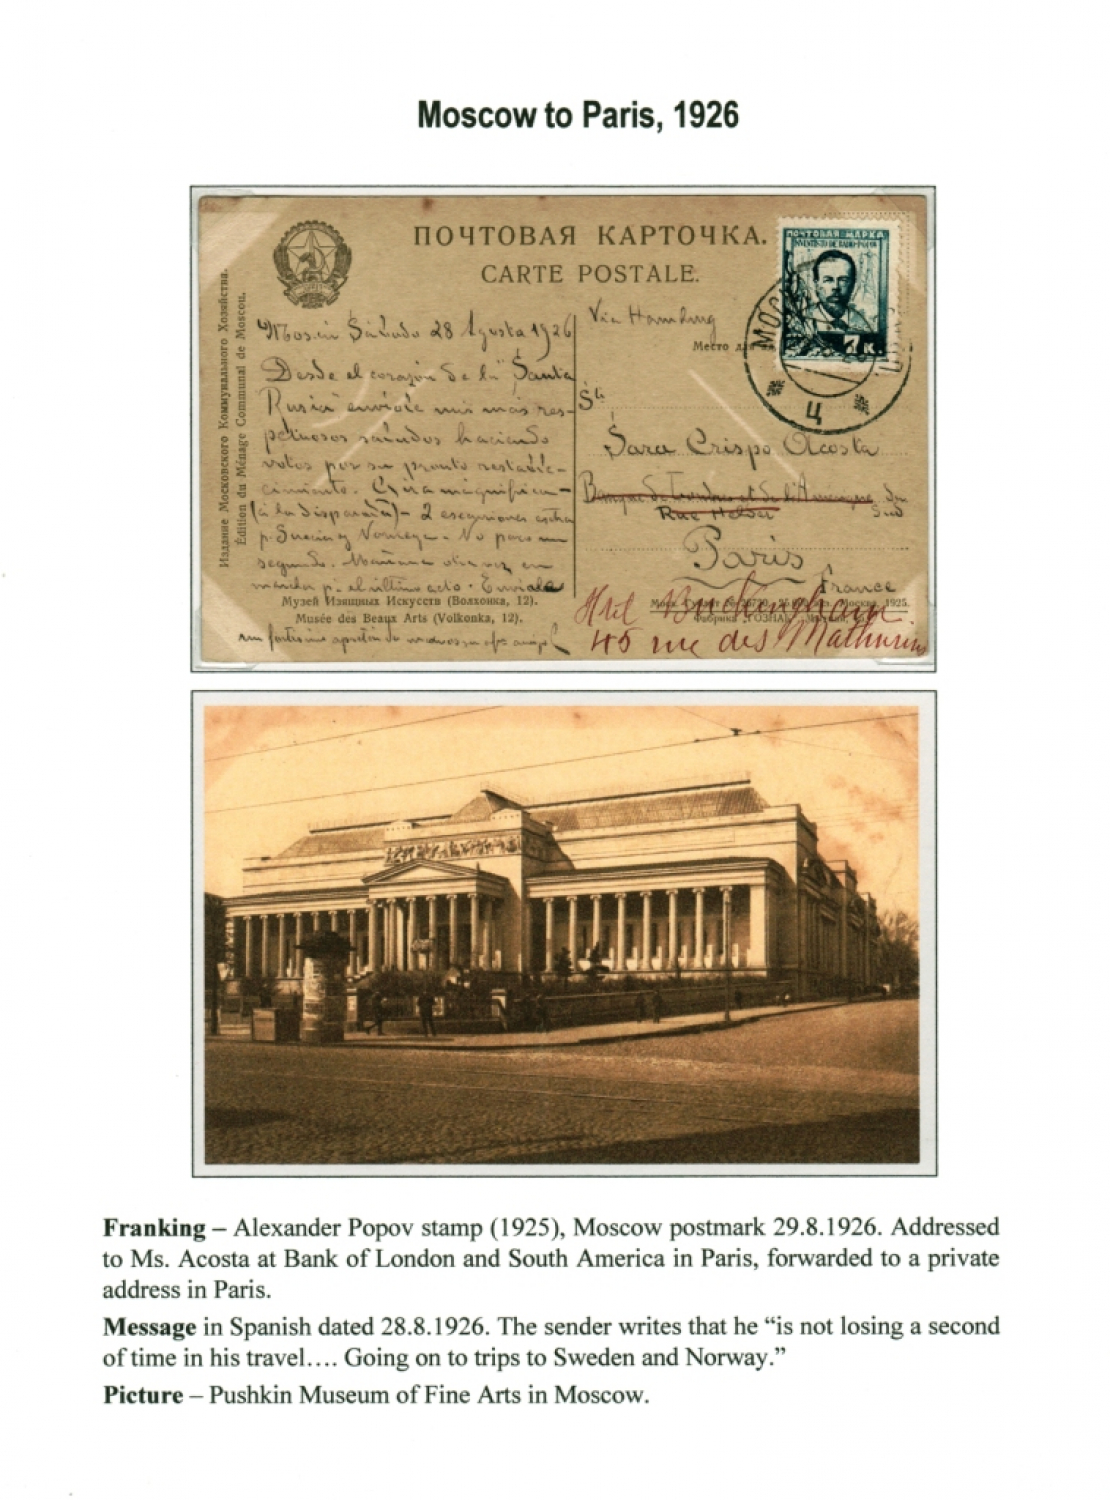 Moscow to Paris, 1926
ПОЧТОВАЯ КАРТОЧКА.
CARTE POSTALE.
ПОЧТОВАЯ МАРКА
7 К.
МОСКВА
Ц
Издание Московского Коммунального Хозяйства.
Édition du Ménage Communal de Moscou.
Via Hamburg
Место для
Sábado 28 Agosto 1926
Desde el corazón de la "Santa
Rusia" envíole mis más res-
petuosos saludos haciendo
votos por su pronto restable-
cimiento. magnífica
(a la disparada) - 2 excursiones
p. Suecia y Noruega - No pierdo un
segundo. Mañana otra vez en
marcha p. el último acto. Envíole
un fortísimo apretón de
Sta
Sara Crispo Acosta
Banque de Londres et de l'Amerique du
Sud
Rue Helder
Paris
France
Hotel Buckingham
45 rue des Mathurins
Музей Изящных Искусств (Волхонка, 12).
Musée des Beaux Arts (Volkonka, 12).
Москва, 1925.
Фабрика ГОЗНАК
Franking – Alexander Popov stamp (1925), Moscow postmark 29.8.1926. Addressed
to Ms. Acosta at Bank of London and South America in Paris, forwarded to a private
address in Paris.
Message in Spanish dated 28.8.1926. The sender writes that he “is not losing a second
of time in his travel…. Going on to trips to Sweden and Norway.”
Picture – Pushkin Museum of Fine Arts in Moscow.